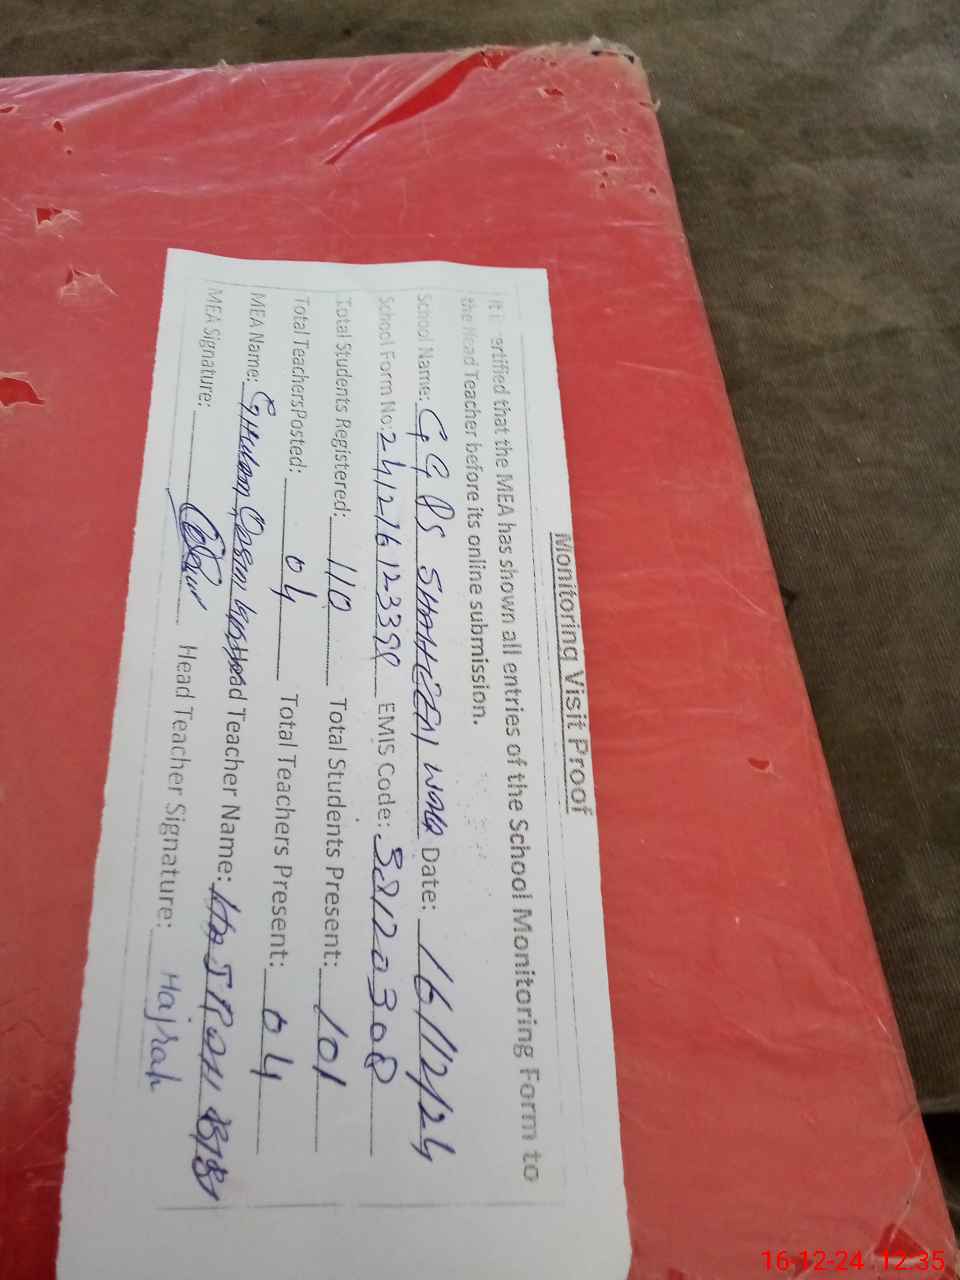 Monitoring Visit Proof
It is certified that the MEA has shown all entries of the School Monitoring Form to
the Head Teacher before its online submission.
School Name: GGPS SHAHEEN WALA Date: 16/12/24
School Form No: 2412161233 EMIS Code: 38120308
Total Students Registered: 110 Total Students Present: 101
Total TeachersPosted: 04 Total Teachers Present: 04
MEA Name: Ghulam Qasim Head Teacher Name: HAJRAH BIBI
MEA Signature: Head Teacher Signature: Hajrah
16-12-24 12:35